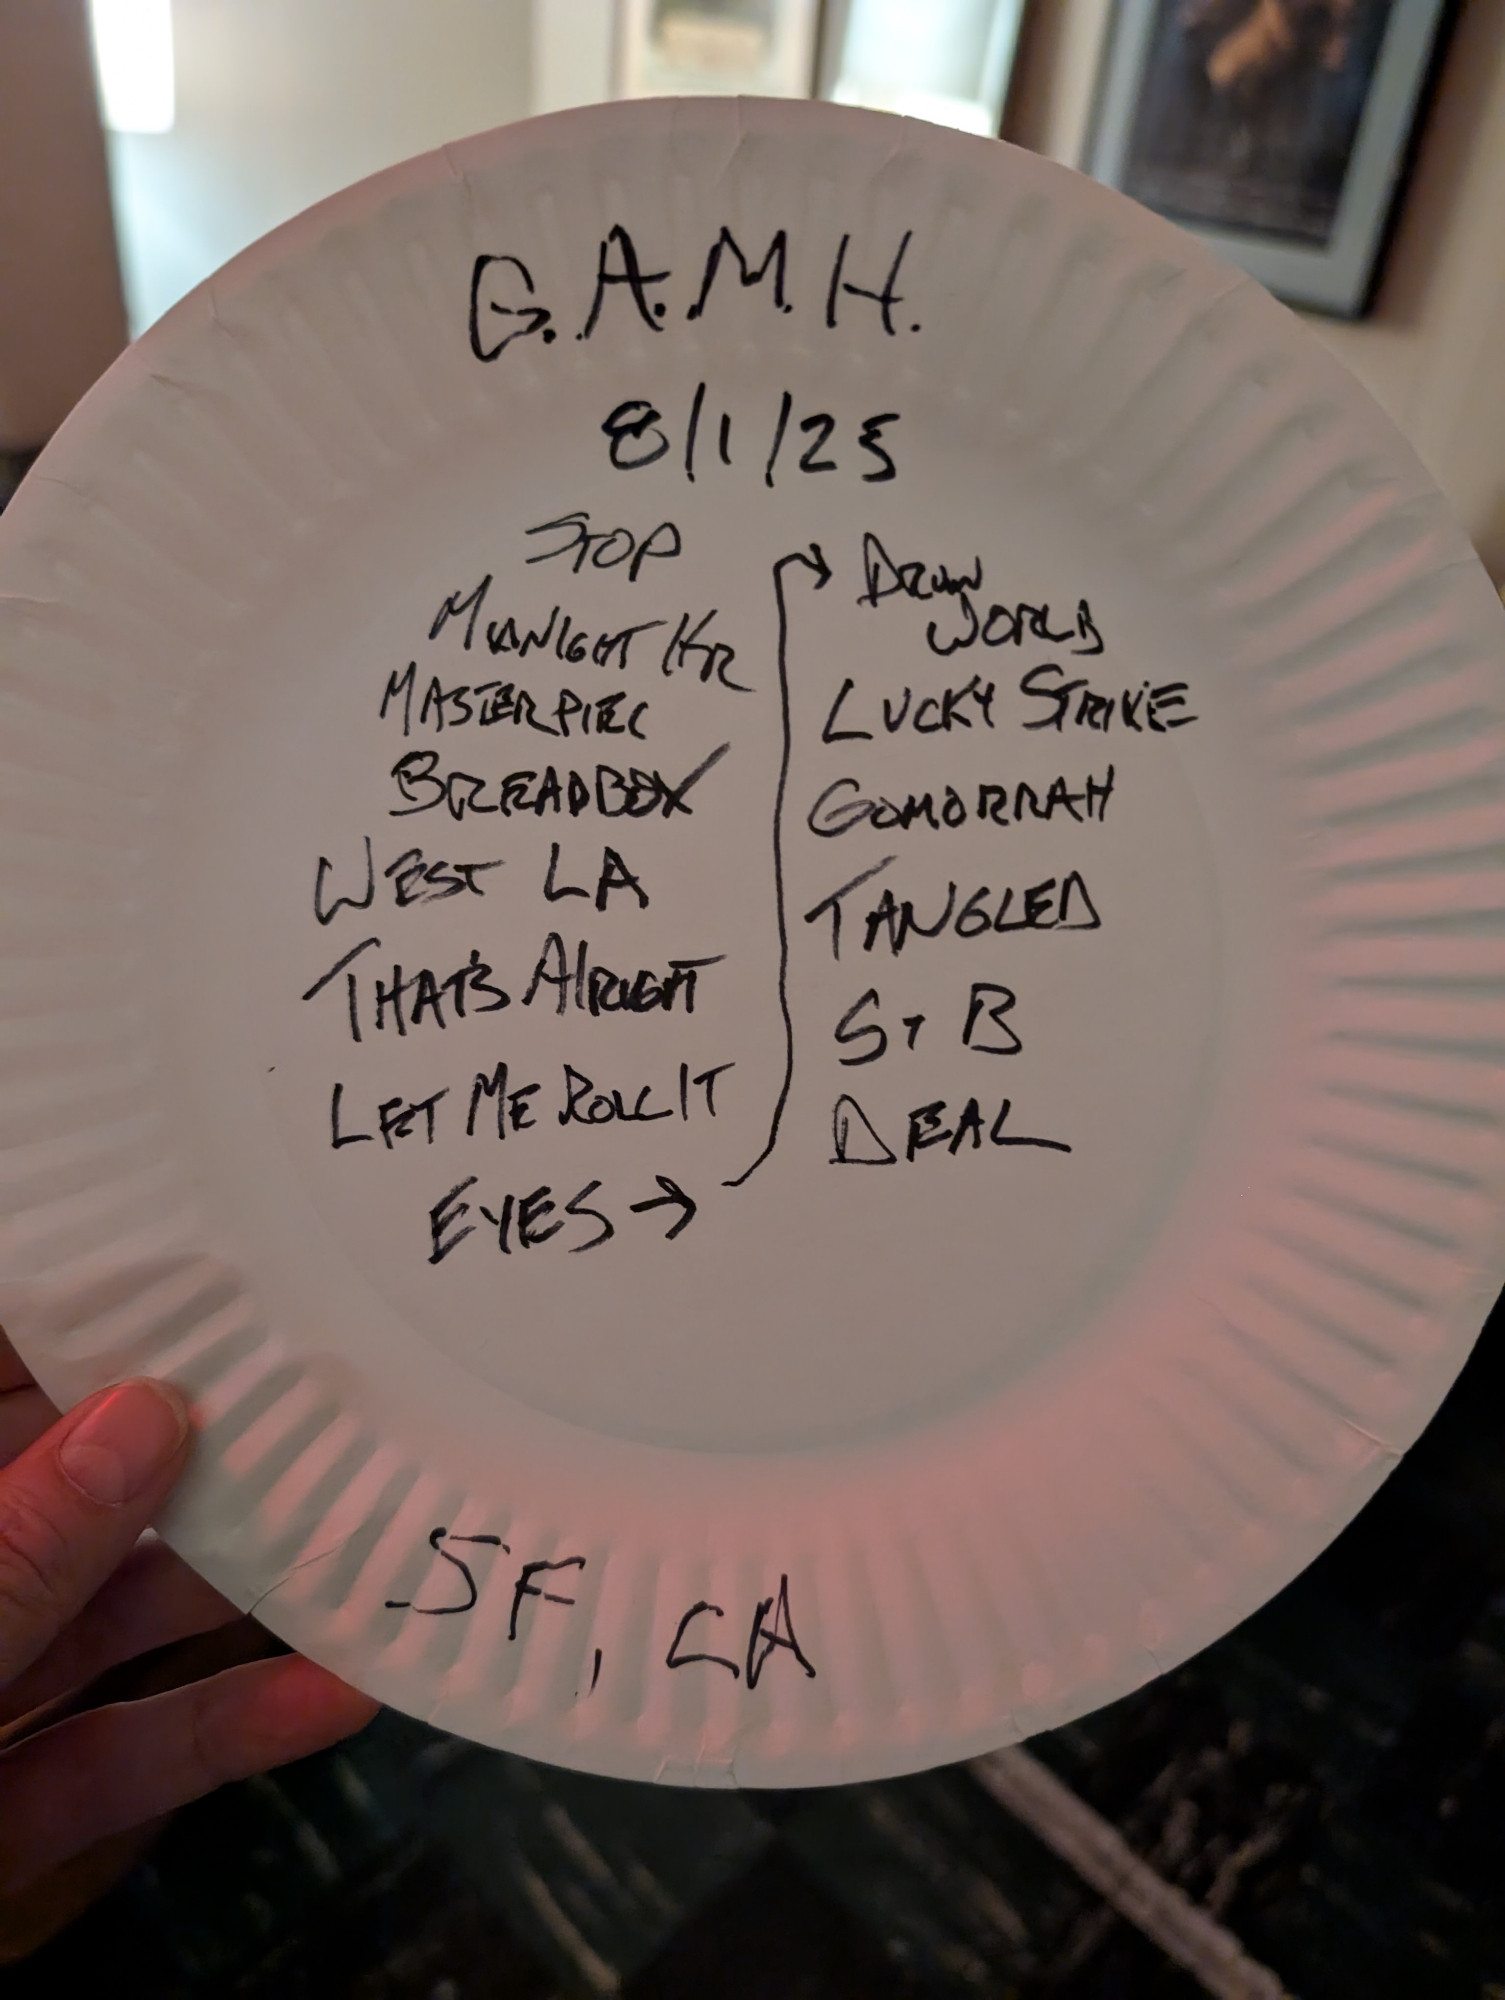 G.A.M.H.
8/1/25
STOP
MIDNIGHT HR
MASTERPIEC
BREADBOX
WEST LA
THAT'S ALRIGHT
LET ME ROLL IT
EYES →
DRUM
WORLD
LUCKY STRIKE
GOMORRAH
TANGLED
ST B
DEAL
SF, CA